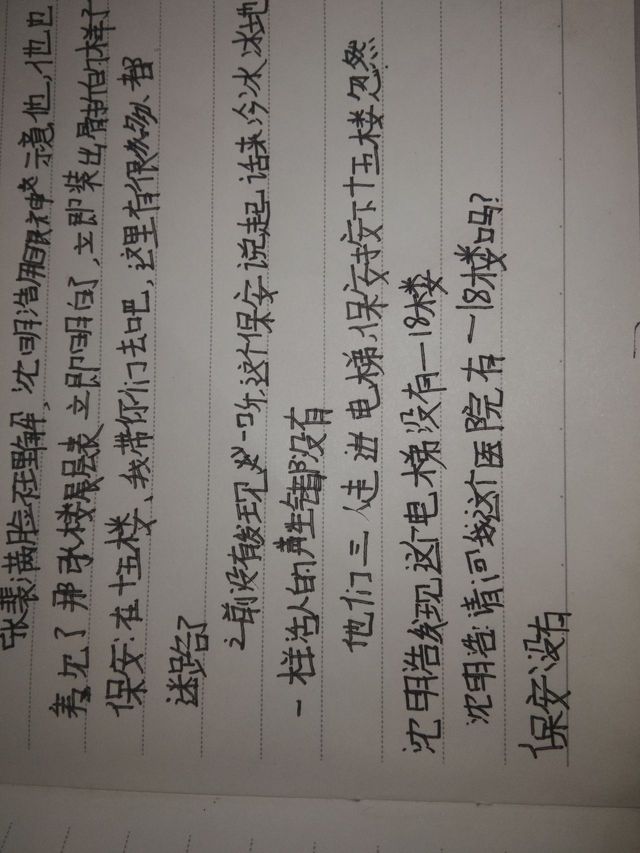 张裴满脸在理解,沈明浩用眼神示意他,他也
看见了那张楼层表立即明白了,立即装出静静的样子
保安:在十五楼、我带你们去吧,这里有很多人都
迷路了
之前没有发现,这个保安说起话来冷冰冰地
一样活人的声生都没有
他们三人走进电梯,保安按下十五楼忽然
沈明浩发现这个电梯没有一18楼
沈明浩:请问我这个医院有一18楼吗?
保安:没有